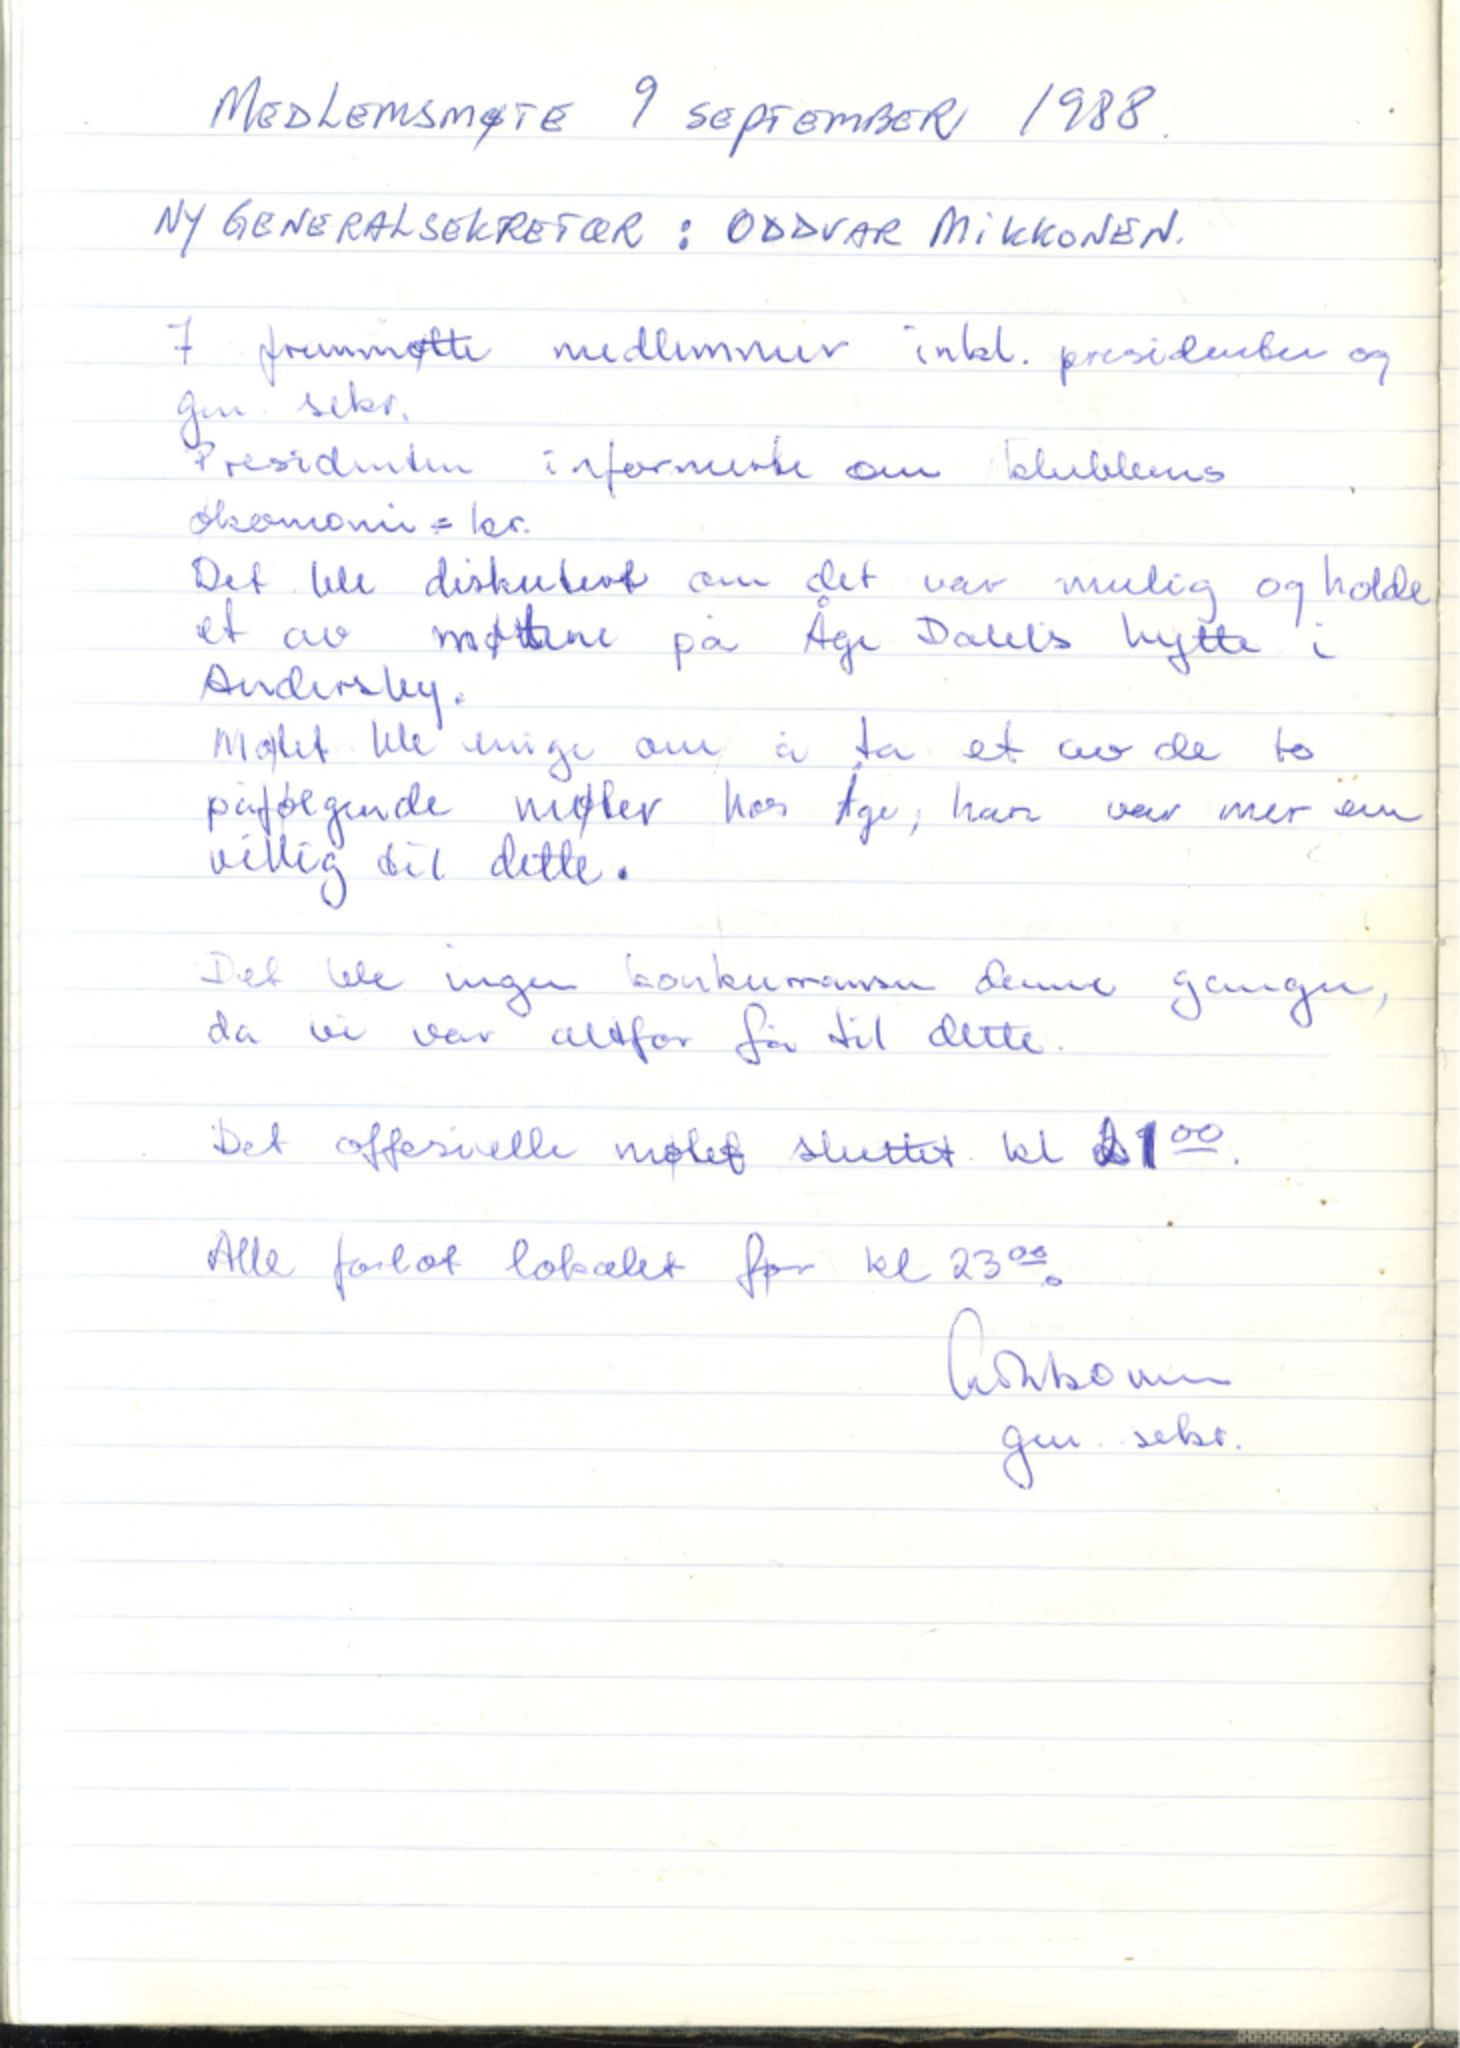 MEDLEMSMØTE 9 SEPTEMBER 1988.
NY GENERALSEKRETÆR : ODDVAR MIKKONEN.
7 fremmøtte medlemmer inkl. presidenten og
gen. sekr.
Presidenten informerte om klubbens
økonomi = kr.
Det ble diskutert om det var mulig og holde
et av møtene på Åge Dahls hytte i
Andersby.
Møtet ble enige om å ta et av de to
påfølgende møter hos Åge, han var mer enn
villig til dette.
Det ble ingen konkurranse denne gangen,
da vi var altfor få til dette.
Det offesielle møtet sluttet kl 21 00.
Alle forlot lokalet før kl 23 00.
gen. sekr.